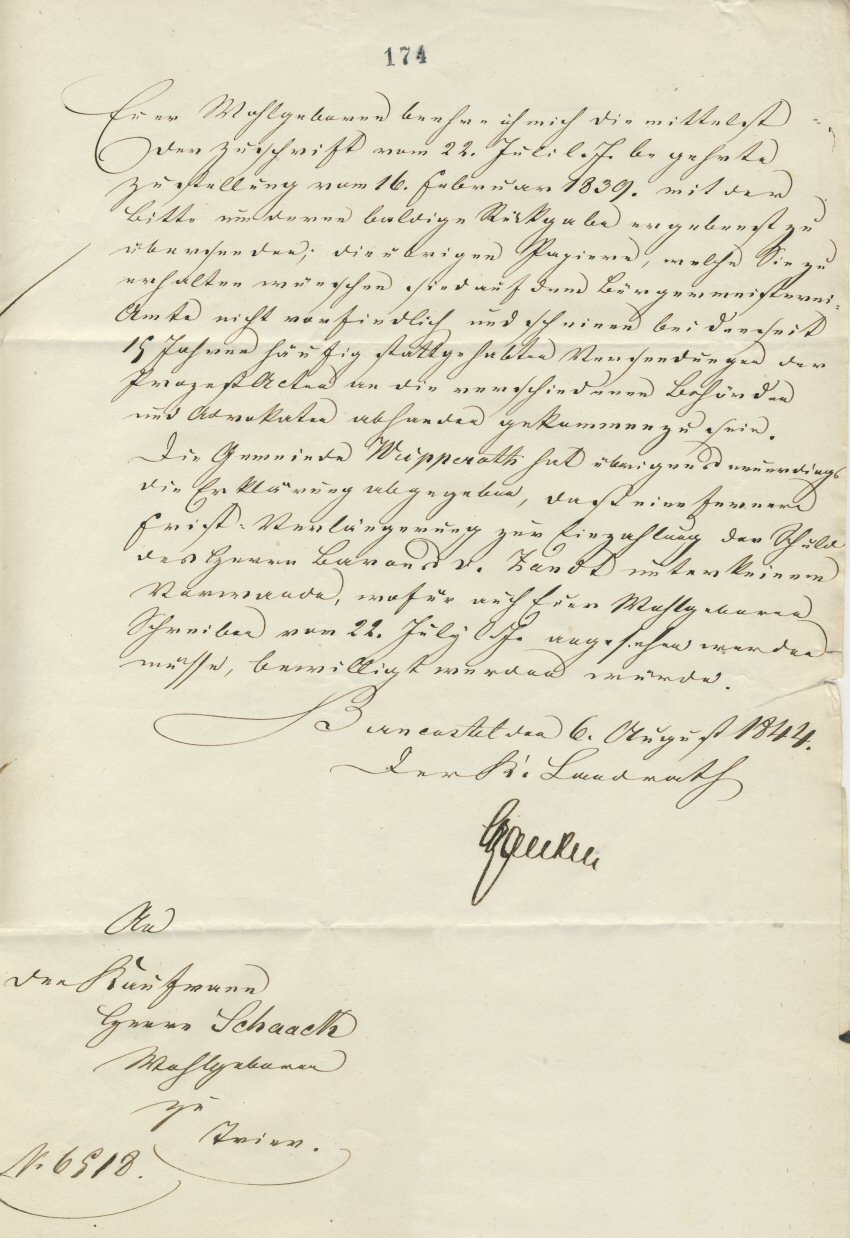 174
Euer Wohlgeboren beehre ich mich die mittelst
der Zuschrift vom 22. Juli l. J. begehrte
Zustellung vom 16. Februar 1839. mit der
Bitte um deren baldige Rückgabe ergebenst zu
übersenden; die übrigen Papiere, welche Sie zu
erhalten wünschen sind auf dem Bürgermeisterei-
Amte nicht vorfindlich und scheinen bei den seit
15 Jahren häufig stattgehabten Versendungen der
Prozeß Acten an die verschiedenen Behörden
und Advokaten abhanden gekommen zu sein.
Die Gemeinde Wüpperath hat übrigens neuerdings
die Erklärung abgegeben, daß eine fernere
Frist-Verlängerung zur Einzahlung der Schuld
des Herrn Barons v. Zandt unter keinem
Vorwande, wofür auch Euer Wohlgeboren
Schreiben vom 22. July l. J. angesehen werden
müsse, bewilligt werden würde.
Berncastel den 6. August 1844.
Der K. Landrath
An
den Kaufmann
Herrn Schaack
Wohlgeboren
zu
Trier.
N. 6518.